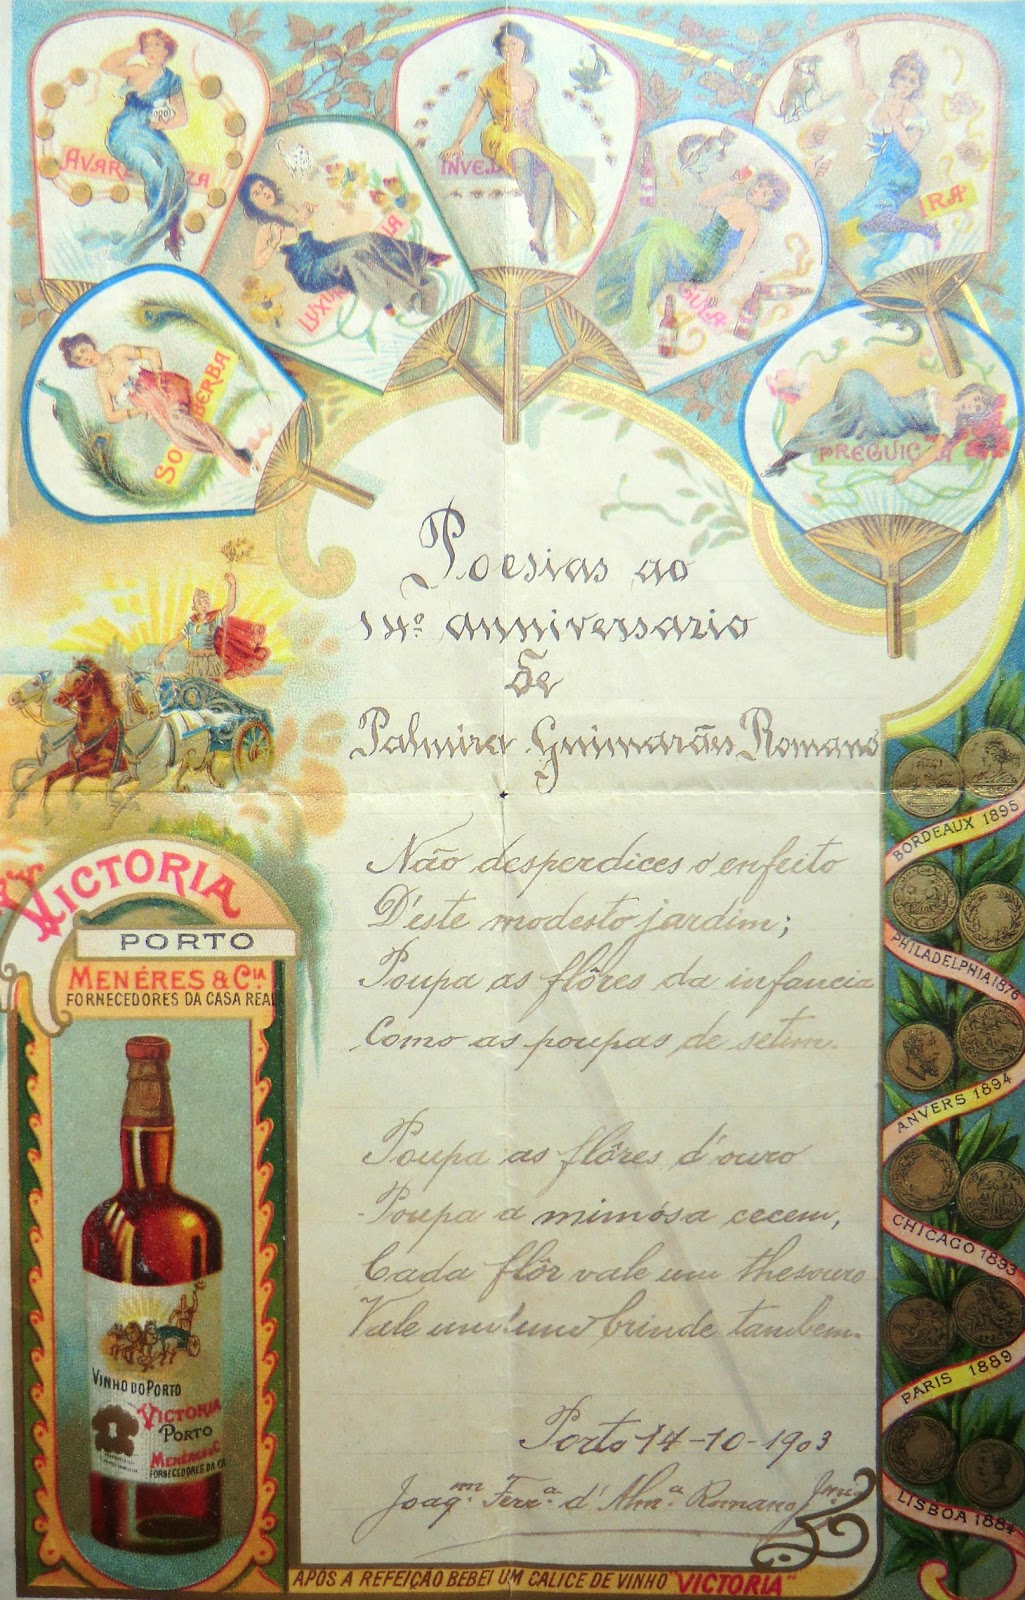 AVAREZA
OROS
LUXURIA
INVEJA
GULA
IRA
SOBERBA
PREGUIÇA
Poesias ao
14º anniversario
de
Palmira Guimarães Romano
Não desperdices o enfeito
D'este modesto jardim;
Poupa as flôres da infancia
Como as poupas de setim.
Poupa as flôres d'ouro
Poupa a mimósa cecem,
Cada flôr vale um thesouro
Vale um brinde tambem.
Porto 14-10-1903
Joaqm. Ferrª d'Almª Romano Jnior
VICTORIA
PORTO
MENÉRES & CIA.
FORNECEDORES DA CASA REAL
VINHO DO PORTO
VICTORIA
PORTO
MENÉRES & C
FORNECEDORES DA CA
BORDEAUX 1895
PHILADELPHIA 1876
ANVERS 1894
CHICAGO 1893
PARIS 1889
LISBOA 1884
APÓS A REFEIÇÃO BEBEI UM CALICE DE VINHO "VICTORIA"